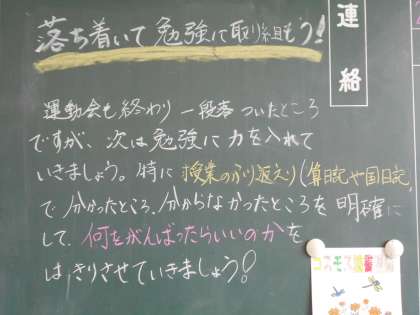 落ち着いて勉強に取り組もう!
連絡
運動会も終わり一段落ついたところ
ですが、次は勉強に力を入れて
いきましょう。特に授業のふり返えり(算日記や国日記
で分かったところ、分からなかったところを明確に
して、何をがんばったらいいのかを
はっきりさせていきましょう!
コスモス